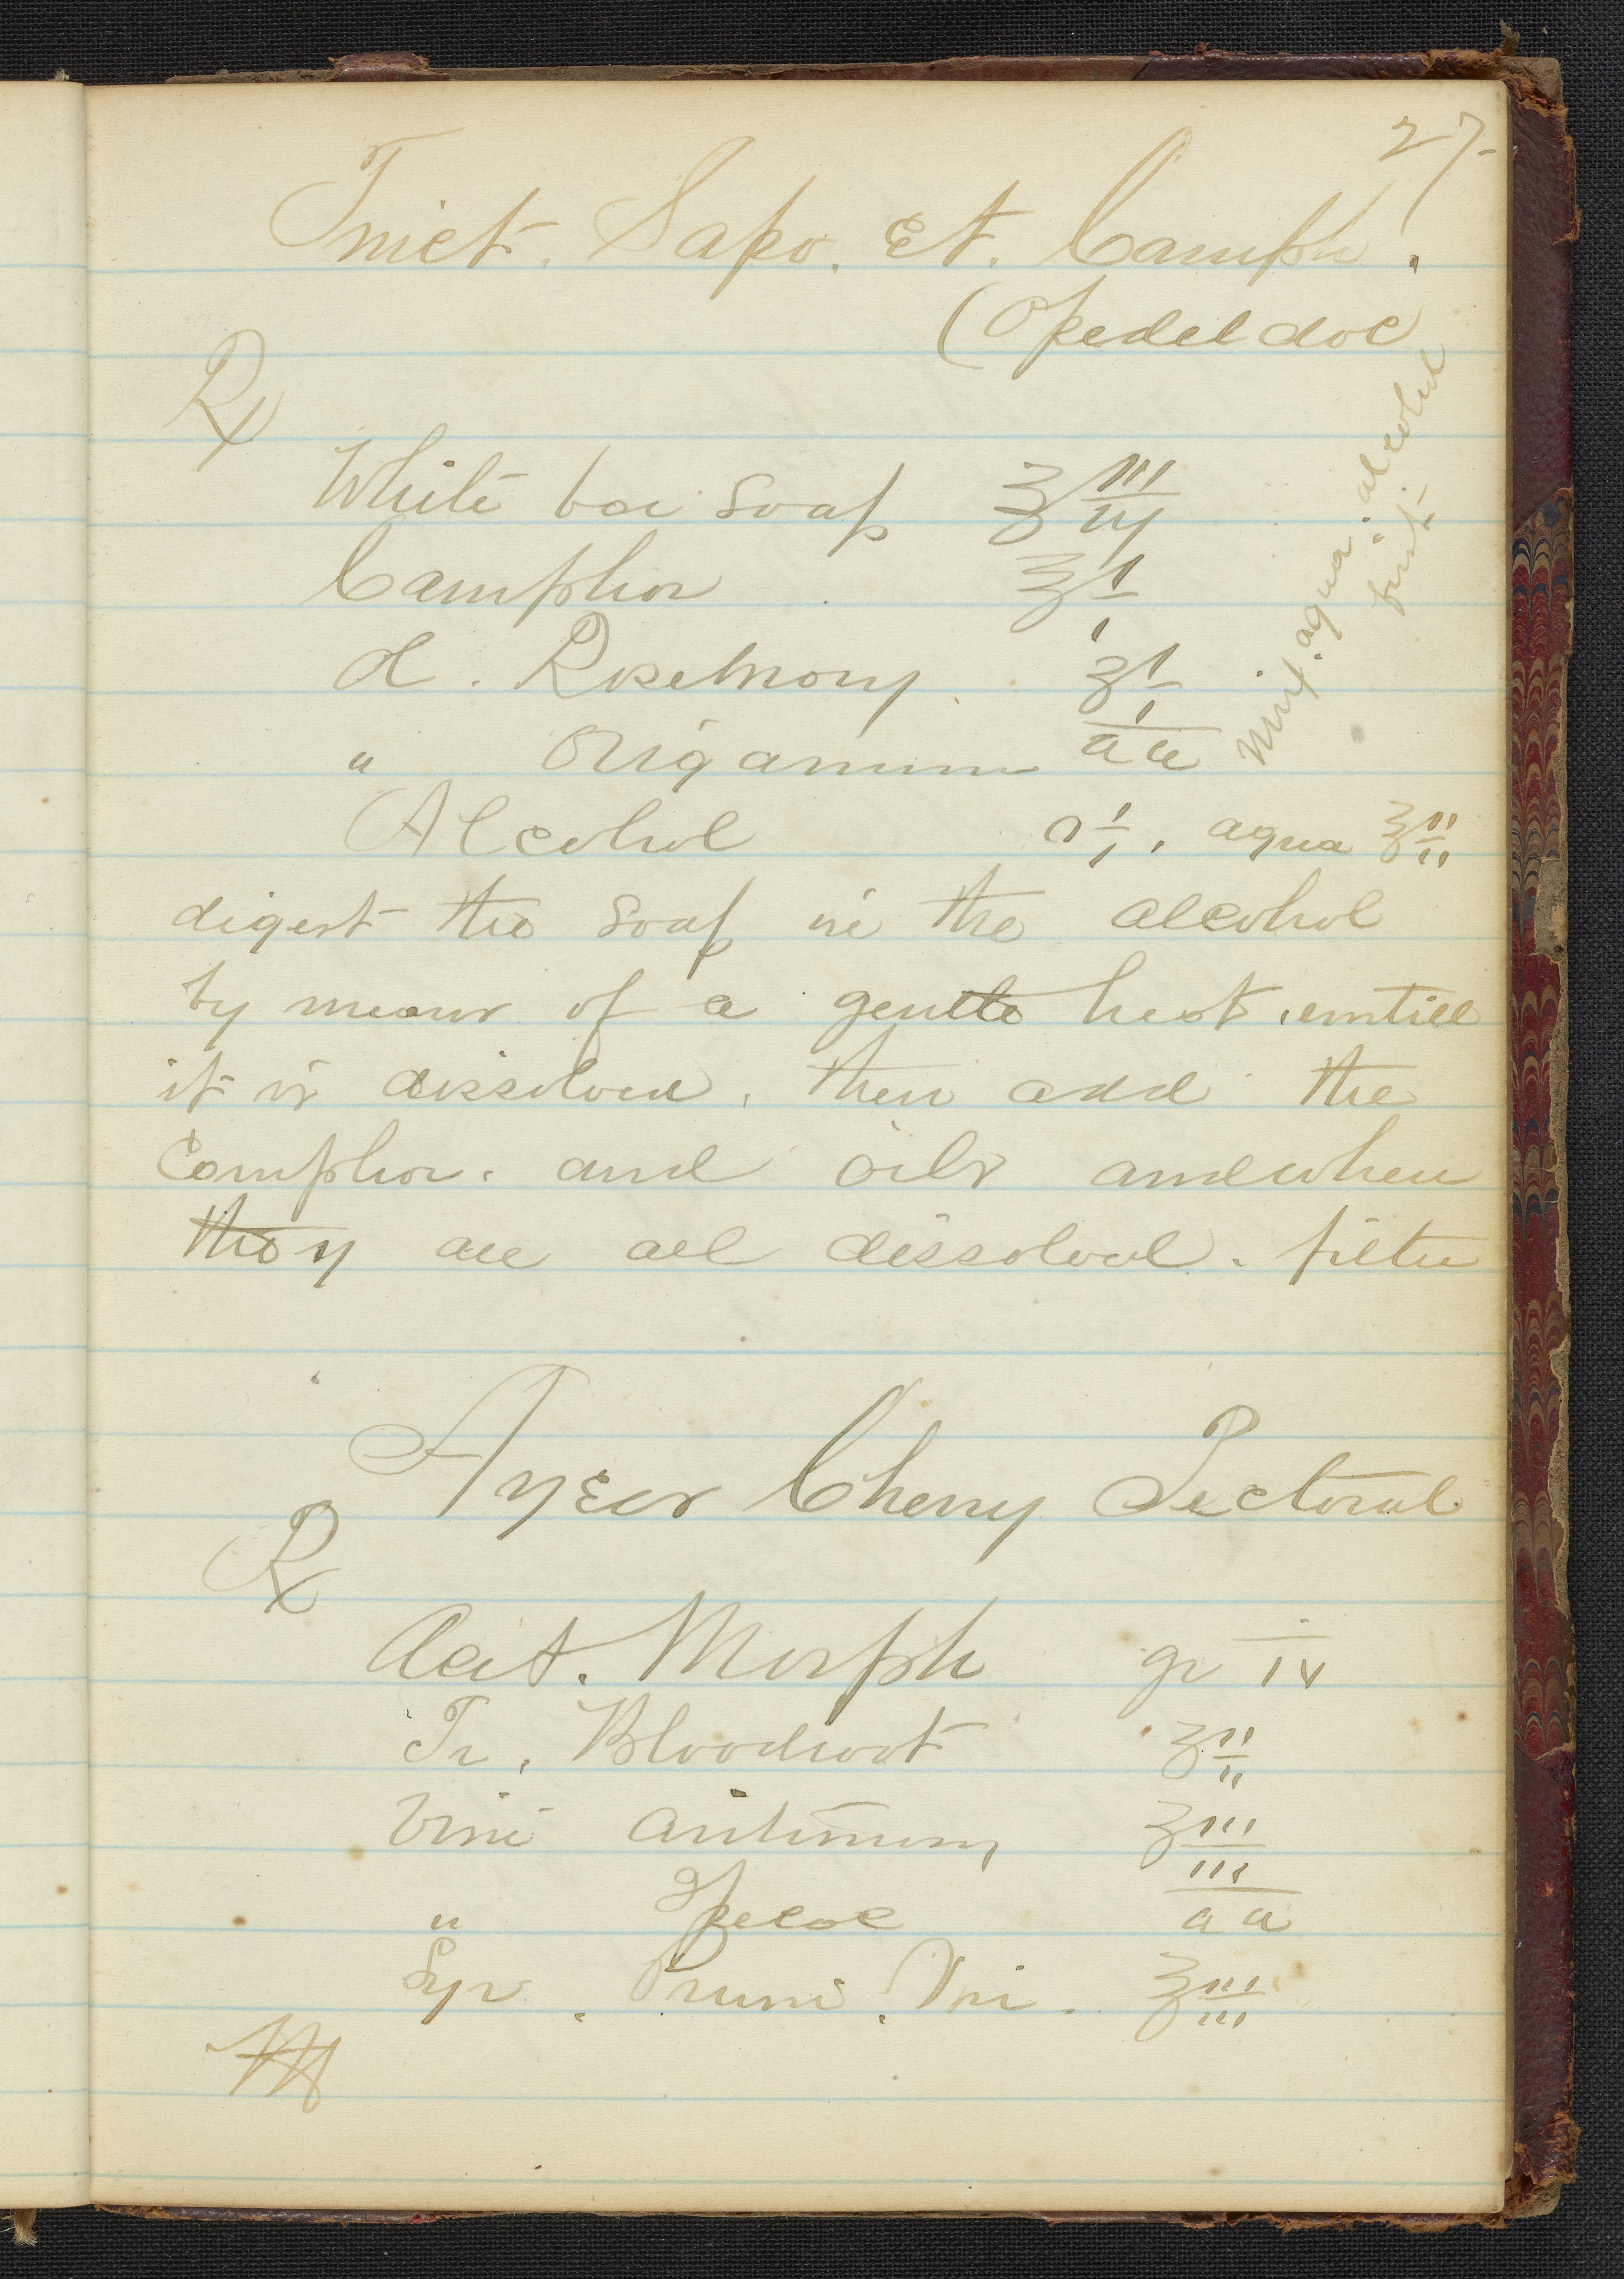 27-
Tinct. Sapo. Et. Camph.
(Opedeldoc
Rx
White bar Soap ℥ iij
Camphor ℥ i
Ol. Rosemary ʒ i
" Origanum aa
Alcohol O i, aqua ℥ ii
Mix. aqua. alcohol
first
digest the Soap in the alcohol
by means of a gentle heat, untill
it is dissolved. then add the
Camphor. and oils and when
they are all dissolved. filter
Ayers Cherry Pectoral
Rx
Acet. Morph gr iv
Tr. Bloodroot ʒ ii
Vini Antimony ʒ iii
" Ipecac aa
Syr. Pruni. Vir. ℥ iii
M